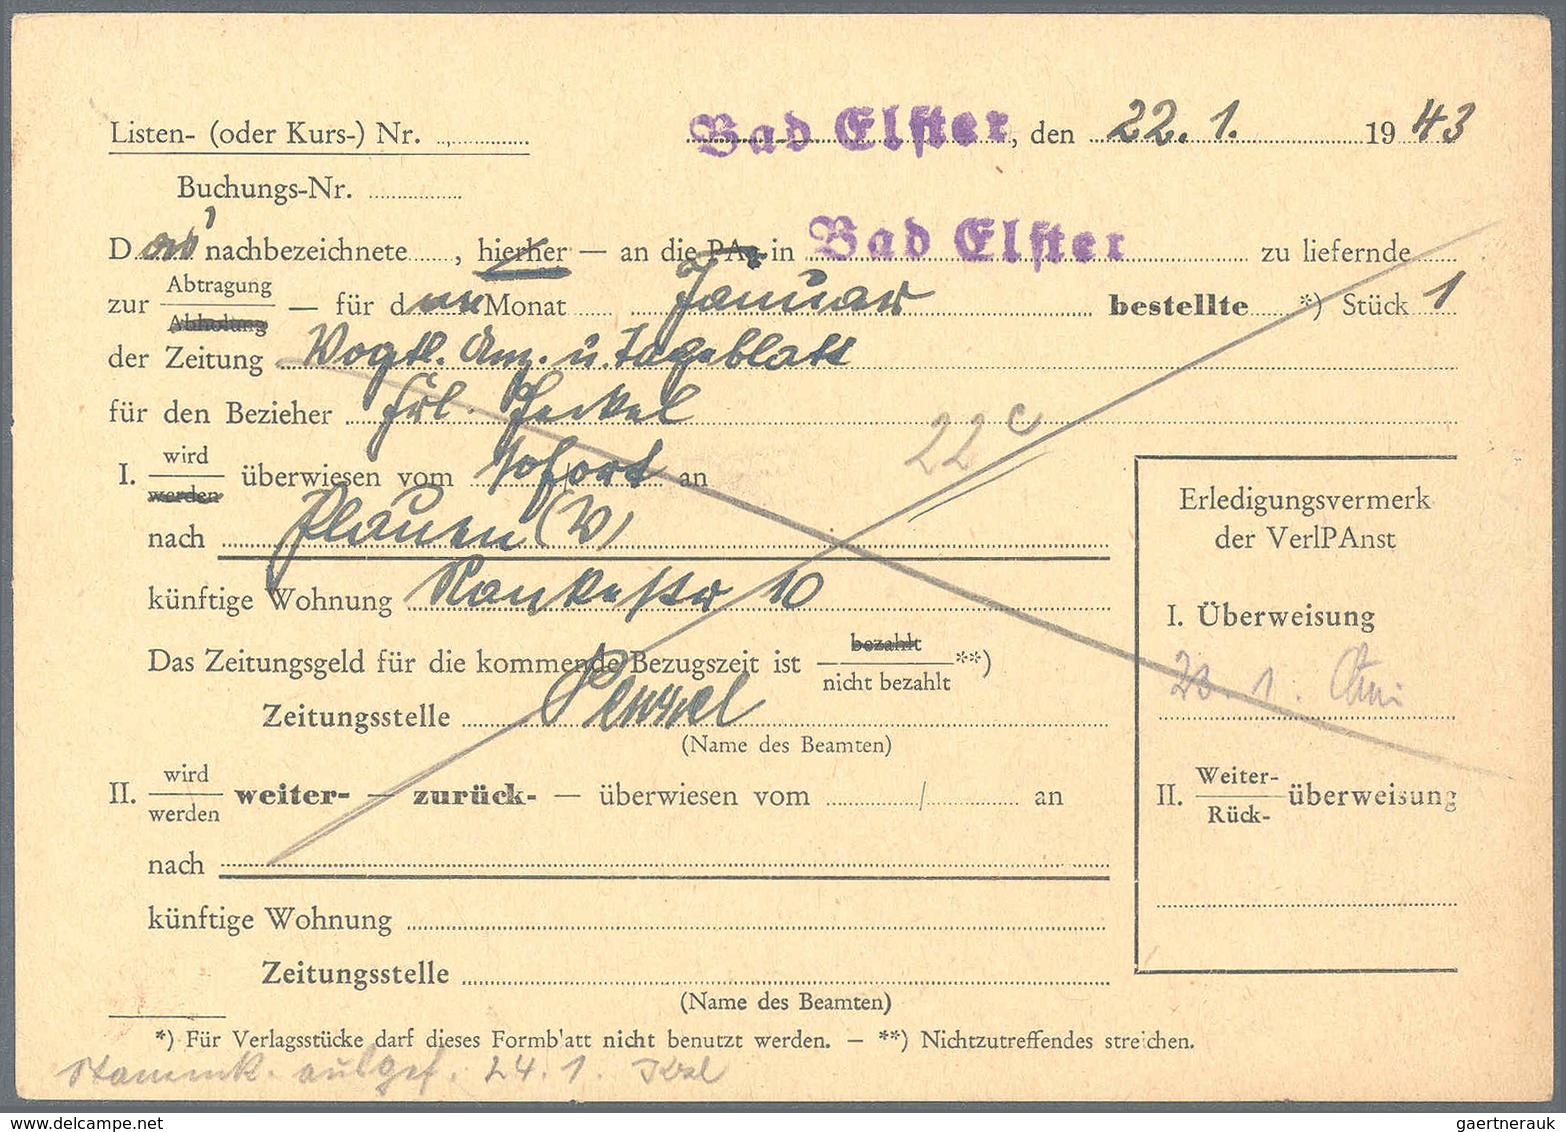 Listen- (oder Kurs-) Nr. Bad Elster, den 22. 1. 1943
Buchungs-Nr.
Das nachbezeichnete, hierher — an die PAg in Bad Elster zu liefernde
zur Abtragung
Abholung — für den Monat Januar bestellte *) Stück 1
der Zeitung Vogtl. Anz. u. Tageblatt
für den Bezieher Frl.
I. wird
werden überwiesen vom sofort / an
22 c
nach Plauen (V)
künftige Wohnung Rankestr 10
Das Zeitungsgeld für die kommende Bezugszeit ist bezahlt
nicht bezahlt **)
Zeitungsstelle
(Name des Beamten)
II. wird
werden weiter- — zurück- — überwiesen vom / an
nach
künftige Wohnung
Zeitungsstelle
(Name des Beamten)
Erledigungsvermerk
der VerlPAnst
I. Überweisung
23. 1.
II. Weiter-
Rück- überweisung
*) Für Verlagsstücke darf dieses Formb'att nicht benutzt werden. — **) Nichtzutreffendes streichen.
Stammk. ausgef. 24. 1.
www.delcampe.net
gaertnerauk